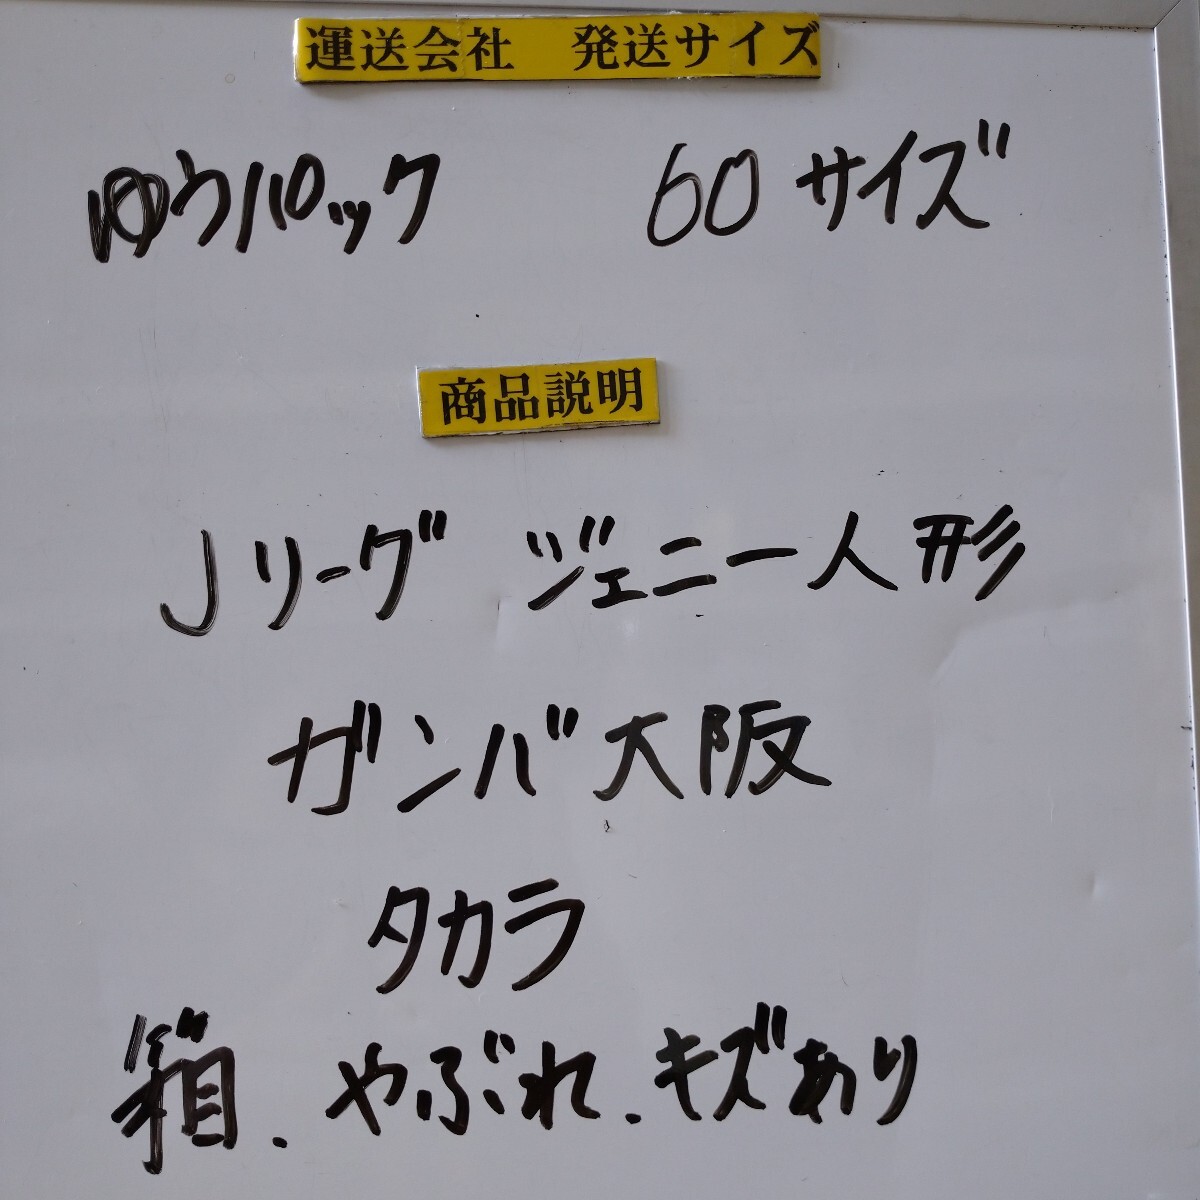 運送会社 発送サイズ
ゆうパック 60サイズ
商品説明
Jリーグ ジェニー人形
ガンバ大阪
タカラ
箱.やぶれ.キズあり